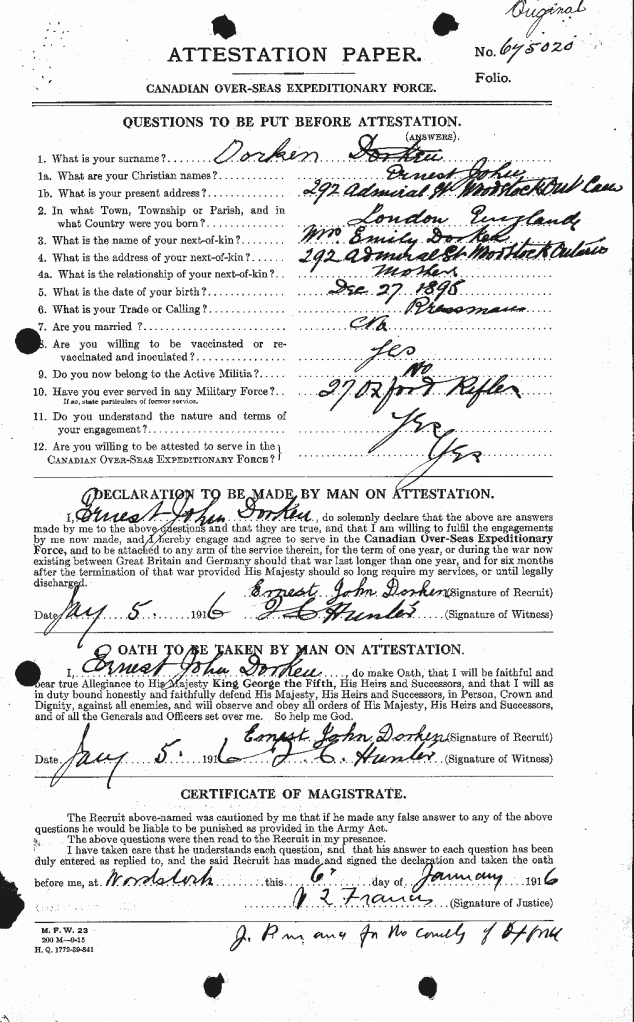 Original
ATTESTATION PAPER.
No. 675020
Folio.
CANADIAN OVER-SEAS EXPEDITIONARY FORCE.
QUESTIONS TO BE PUT BEFORE ATTESTATION.
(ANSWERS).
1. What is your surname? Dorken Dorken
1a. What are your Christian names? Ernest John
1b. What is your present address? 292 Admiral St Woodstock Ont Can
2. In what Town, Township or Parish, and in
what Country were you born? London England
3. What is the name of your next-of-kin? Mrs Emily Dorken
4. What is the address of your next-of-kin? 292 Admiral St Woodstock Ontario
4a. What is the relationship of your next-of-kin? Mother
5. What is the date of your birth? Dec 27. 1895
6. What is your Trade or Calling? Pressman
7. Are you married? No
8. Are you willing to be vaccinated or re-
vaccinated and inoculated? Yes
9. Do you now belong to the Active Militia? No
10. Have you ever served in any Military Force? 27 Oxford Rifles
If so, state particulars of former service.
11. Do you understand the nature and terms of
your engagement? Yes
12. Are you willing to be attested to serve in the
CANADIAN OVER-SEAS EXPEDITIONARY FORCE? Yes
DECLARATION TO BE MADE BY MAN ON ATTESTATION.
I, Ernest John Dorken, do solemnly declare that the above are answers
made by me to the above questions and that they are true, and that I am willing to fulfil the engagements
by me now made, and I hereby engage and agree to serve in the Canadian Over-Seas Expeditionary
Force, and to be attached to any arm of the service therein, for the term of one year, or during the war now
existing between Great Britain and Germany should that war last longer than one year, and for six months
after the termination of that war provided His Majesty should so long require my services, or until legally
discharged.
Ernest John Dorken (Signature of Recruit)
Date Jany 5. 1916 Hunter (Signature of Witness)
OATH TO BE TAKEN BY MAN ON ATTESTATION.
I, Ernest John Dorken, do make Oath, that I will be faithful and
bear true Allegiance to His Majesty King George the Fifth, His Heirs and Successors, and that I will as
in duty bound honestly and faithfully defend His Majesty, His Heirs and Successors, in Person, Crown and
Dignity, against all enemies, and will observe and obey all orders of His Majesty, His Heirs and Successors,
and of all the Generals and Officers set over me. So help me God.
Ernest John Dorken (Signature of Recruit)
Date Jany 5. 1916 Hunter (Signature of Witness)
CERTIFICATE OF MAGISTRATE.
The Recruit above-named was cautioned by me that if he made any false answer to any of the above
questions he would be liable to be punished as provided in the Army Act.
The above questions were then read to the Recruit in my presence.
I have taken care that he understands each question, and that his answer to each question has been
duly entered as replied to, and the said Recruit has made and signed the declaration and taken the oath
before me, at Woodstock this 6th day of January 1916
Francis (Signature of Justice)
M. F. W. 23
200 M—9-15
H. Q. 1772-39-841
J. P. in and for the county of Oxford